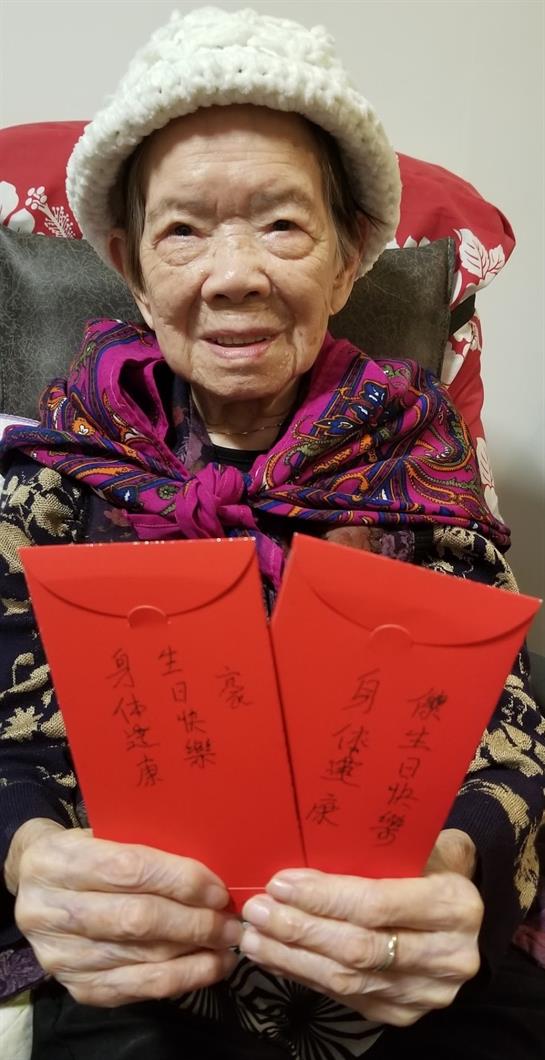 豪
生日快樂
身体建康
傑生日快樂
身体建康